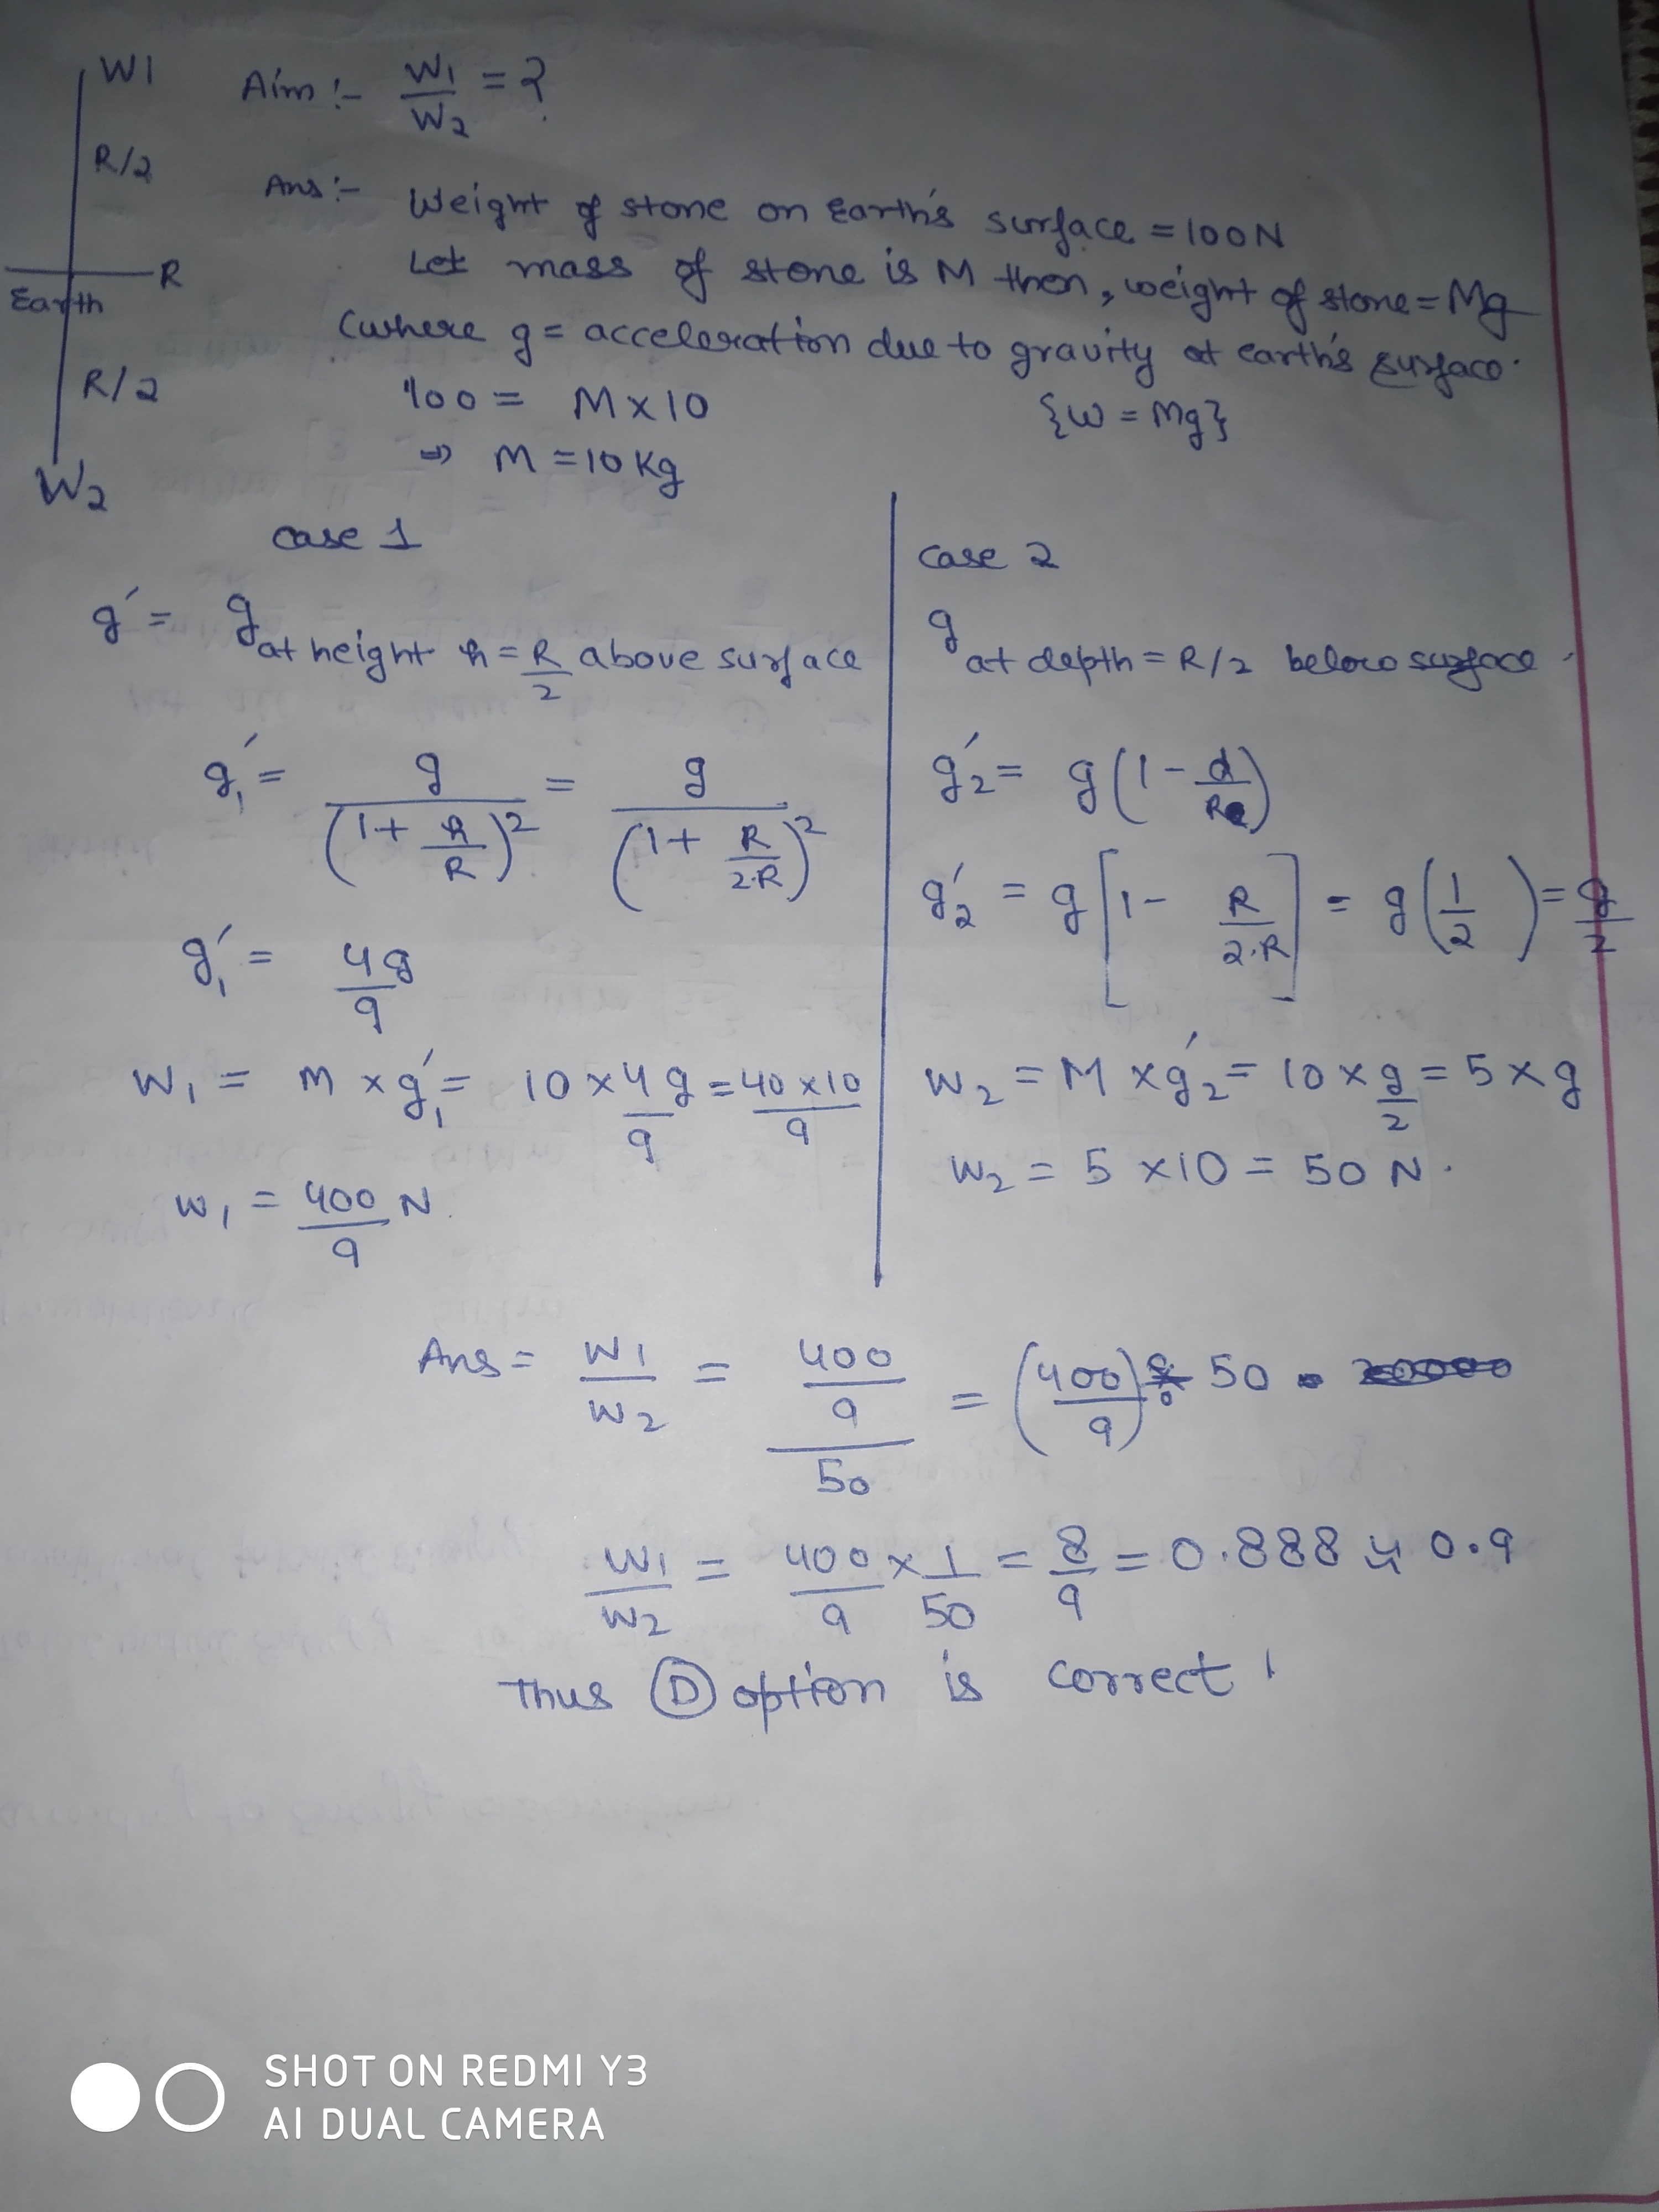 W1
R/2
R
Earth
R/2
W2
Aim :- W1/W2 = ?
Ans :- Weight of stone on Earth's surface = 100N
Let mass of stone is M then, weight of stone = Mg
(where g = acceleration due to gravity at earth's surface.
100 = M x 10 {W = Mg}
⇒ M = 10 Kg
case 1
g' = g at height h = R/2 above surface
g1' = g/(1 + h/R)² = g/(1 + R/2.R)²
g1' = 4g/9
W1 = M x g1' = 10 x 4/9 g = 40 x 10/9
W1 = 400/9 N.
case 2
g at depth = R/2 below surface.
g2' = g(1 - d/Re)
g2' = g[1 - R/2.R] = g(1/2) = g/2
W2 = M x g2' = 10 x g/2 = 5 x g
W2 = 5 x 10 = 50 N.
Ans = W1/W2 = 400/9/50 = (400/9) ÷ 50
W1/W2 = 400/9 x 1/50 = 8/9 = 0.888 ≈ 0.9
Thus (D) option is correct
SHOT ON REDMI Y3
AI DUAL CAMERA